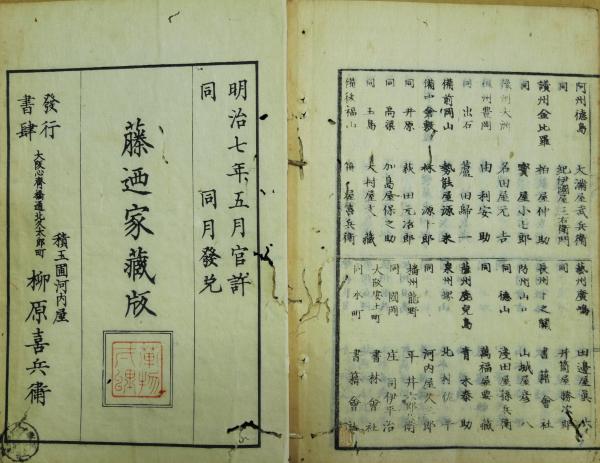 阿州德島 武兵衛
同 紀伊國屋三右衛門
讃州金比羅 柏屋仲助
寶屋小七郎
名田屋元吉
豊岡 由利安助
同出石 蘆田歸一
備前岡山
備中倉敷 林源十郎
同井原 萩田元治郎
同高梁 加島屋保之助
同玉島 大村屋文藏
備後福山 屋喜兵衛
藝州廣嶋 田邊屋
同 井筒屋勝次郎
長州下之關 書籍會社
防州山口 山城屋彦八
同德山 淺田屋孫兵衛
同 萬福屋要藏
薩州鹿兒島 青木泰助
泉州堺 北村佐平
同 河内屋久
播州龍野 井六郎兵衛
同國岡 庄司伊平治
大阪安土町 書林會社
同本町 書籍會社
明治七年五月官許
同 同月發兌
藤迺家藏版
發行
書肆
大阪心齋橋通北久太郎町
積玉圃河内屋
柳原喜兵衛